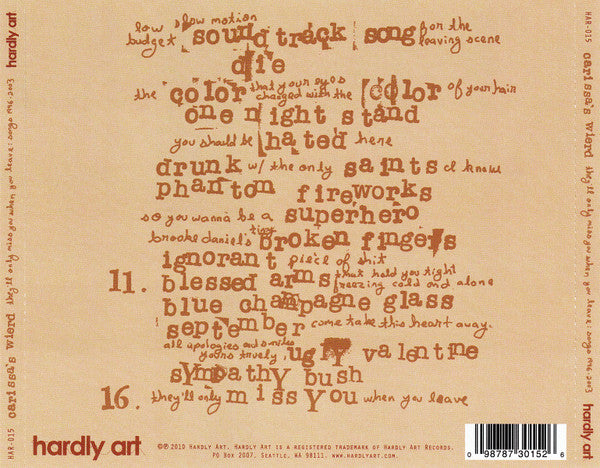 low slow motion for the
budget soundtrack song leaving scene
die
the color that your eyes changed with the color of your hair
one night stand
you should be hated here
drunk w/ the only saints I know
phantom fireworks
so you wanna be a superhero
brooke daniel's tiny broken fingers
ignorant piece of shit
11. blessed arms that hold you tight freezing cold and alone
blue champagne glass
september come take this heart away.
all apologies and smiles yours truely, ugly valentine
sympathy bush
16. they'll only miss you when you leave
hardly art
©℗ 2010 Hardly Art. Hardly Art is a registered trademark of Hardly Art Records.
PO Box 2007, Seattle, WA 98111. www.hardlyart.com
0 98787 30152 6
HAR-015 carissa's wierd they'll only miss you when you leave: songs 1996-2003 hardly art
HAR-015 carissa's wierd they'll only miss you when you leave: songs 1996-2003 hardly art